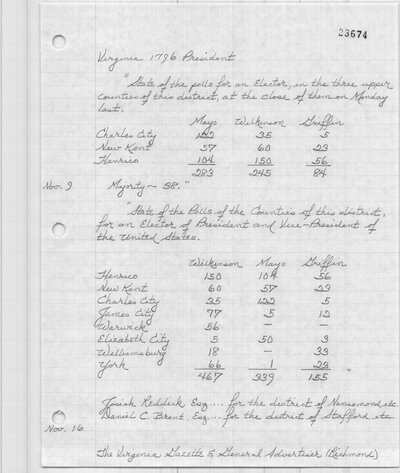 23674
Virginia 1796 President
"State of the polls for an Elector, in the three upper
counties of this district, at the close of them on Monday
last.
Mayo Wilkinson Griffin
Charles City 122 35 5
New Kent 57 60 23
Henrico 104 150 56
283 245 84
Nov. 9 Majority ~ 38."
"State of the Polls of the Counties of this district,
for an Elector of President and Vice~President of
the United States.
Wilkinson Mayo Griffin
Henrico 150 104 56
New Kent 60 57 23
Charles City 35 122 5
James City 77 5 12
Warwick 56 — —
Elizabeth City 5 50 3
Williamsburg 18 — 33
York 66 1 23
467 339 155 "
Josiah Reddick Esq.... for the district of Nansemond, etc.
Daniel C. Brent, Esq.... for the district of Stafford, etc.
Nov. 16
The Virginia Gazette & General Advertiser (Richmond)